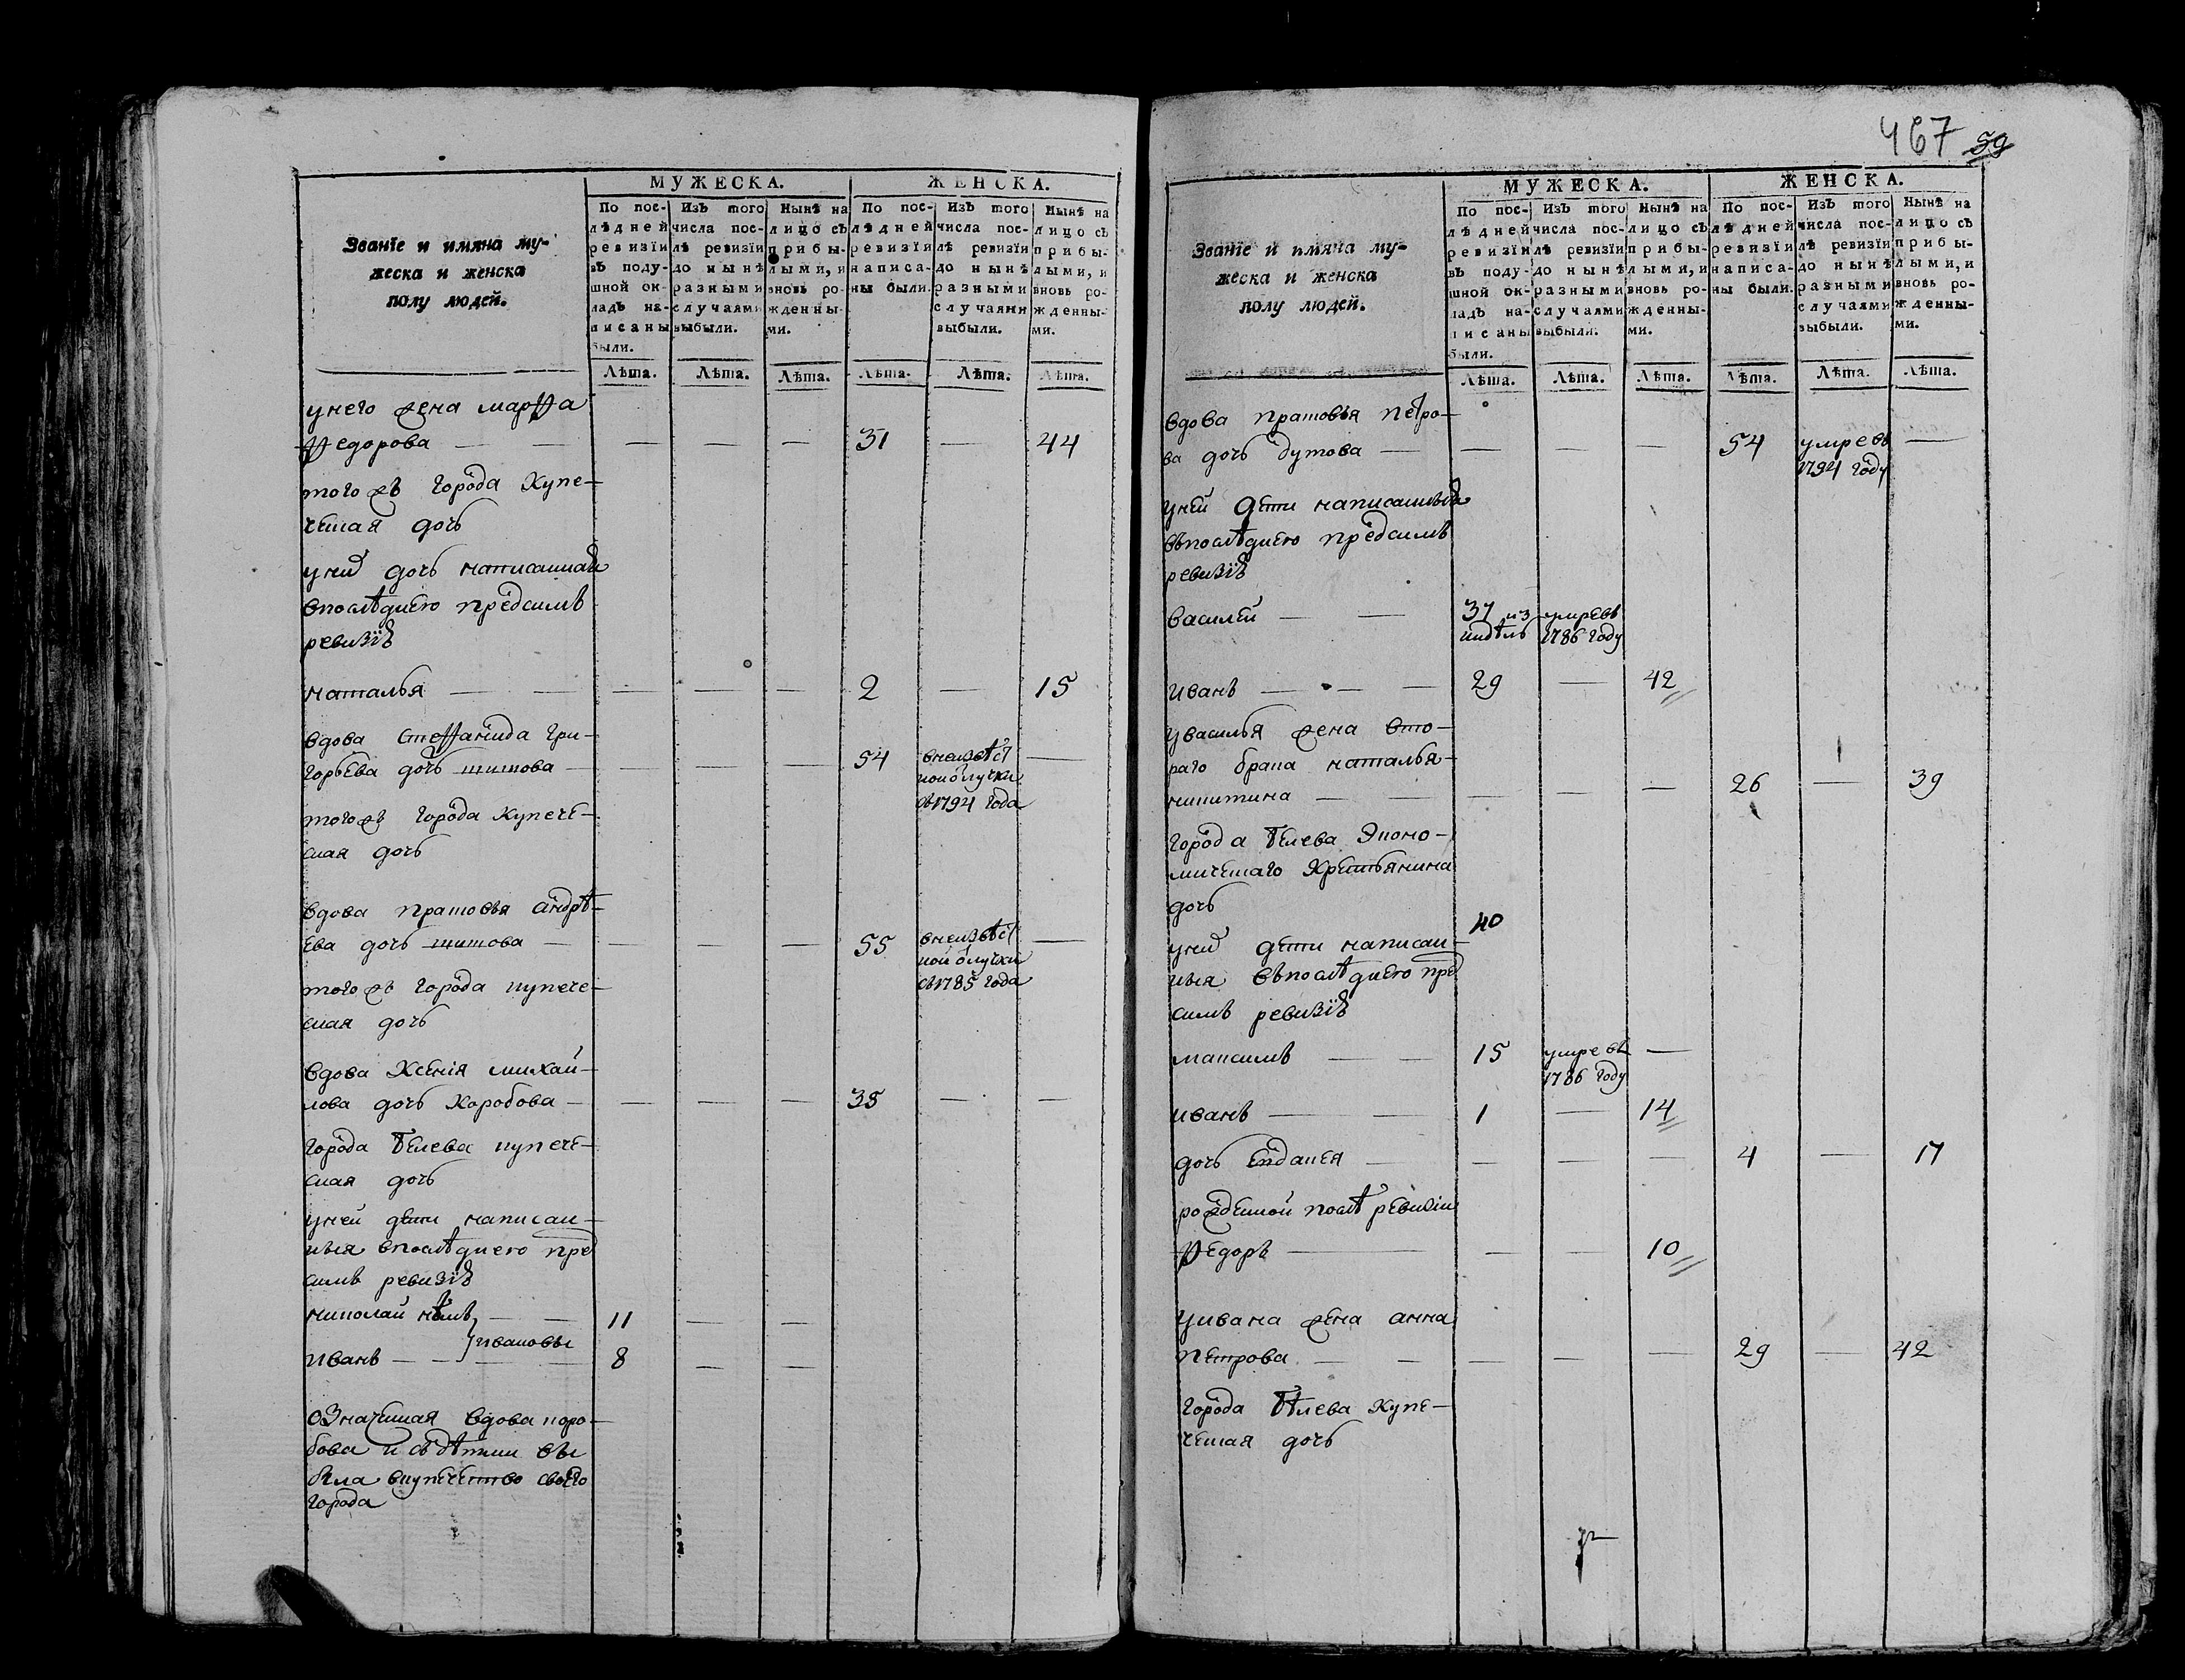 МУЖЕСКА. ЖЕНСКА.
Званіе и имяна му-
жеска и женска
полу людей.
По пос-
лѣдней
ревизіи
въ поду-
шной ок-
ладъ на-
писаны
были.
Изъ того
числа пос-
лѣ ревизіи
до нынѣ
разными
случаями
выбыли.
Нынѣ на
лицо съ
прибы-
лыми, и
вновь ро-
жденны-
ми.
По пос-
лѣдней
ревизіи
написа-
ны были.
Изъ того
числа пос-
лѣ ревизіи
до нынѣ
разными
случаями
выбыли.
Нынѣ на
лицо съ
прибы-
лыми, и
вновь ро-
жденны-
ми.
Лѣта. Лѣта. Лѣта. Лѣта. Лѣта. Лѣта.
унего жена марфа
федорова — — — — — 31 — 44
тогожъ города купе-
ческая дочь
уних дочь написанная
впослѣднею предсимъ
ревизїю
наталья — — — — — 2 — 15
вдова стефанида гри-
горьева дочь титова — — — — 54 внеизвѣст
ной отлучки
съ 1794 года —
тогожъ города купече-
ская дочь
вдова пратовья андрѣ-
ева дочь титова — — — — 55 внеизвѣст
ной отлучки
съ 1785 года —
тогожъ города купече-
ская дочь
вдова ксенія михай-
лова дочь коробова — — — — 35 — —
города белева купече-
ская дочь
уней дети написан-
ныя впослѣднею пред
симъ ревизїю
николай — — 11 — —
ивановы
иванъ — — — 8 — —
означенная вдова коро-
бова и съ дѣтми вы
была вкупечество своего
города
467 59
МУЖЕСКА. ЖЕНСКА.
Званіе и имяна му-
жеска и женска
полу людей.
По пос-
лѣдней
ревизіи
въ поду-
шной ок-
ладъ на-
писаны
были.
Изъ того
числа пос-
лѣ ревизіи
до нынѣ
разными
случаями
выбыли.
Нынѣ на
лицо съ
прибы-
лыми, и
вновь ро-
жденны-
ми.
По пос-
лѣдней
ревизіи
написа-
ны были.
Изъ того
числа пос-
лѣ ревизіи
до нынѣ
разными
случаями
выбыли.
Нынѣ на
лицо съ
прибы-
лыми, и
вновь ро-
жденны-
ми.
Лѣта. Лѣта. Лѣта. Лѣта. Лѣта. Лѣта.
вдова пратовья петро-
ва дочь дутова — — — — 54 умре въ
1794 году —
уней дети написанныя
въпослѣднею предсимъ
ревизїю
василей — — 37 умре въ
1786 году
иванъ — — — 29 — 42
увасилья жена вто-
раго брака наталья
никитина — — — — — 26 — 39
города белева эконо-
мическаго крестьянина
дочь
40
уних дети написан-
ныя въпослѣднею пред
симъ ревизїю
максимъ — — 15 умре въ
1786 году —
иванъ — — 1 — 14
дочь евдакея — — — — 4 — 17
рожденной послѣ ревизіи
федоръ — — — 10
уивана жена анна
петрова — — — — — 29 — 42
города бѣлева купе-
ческая дочь